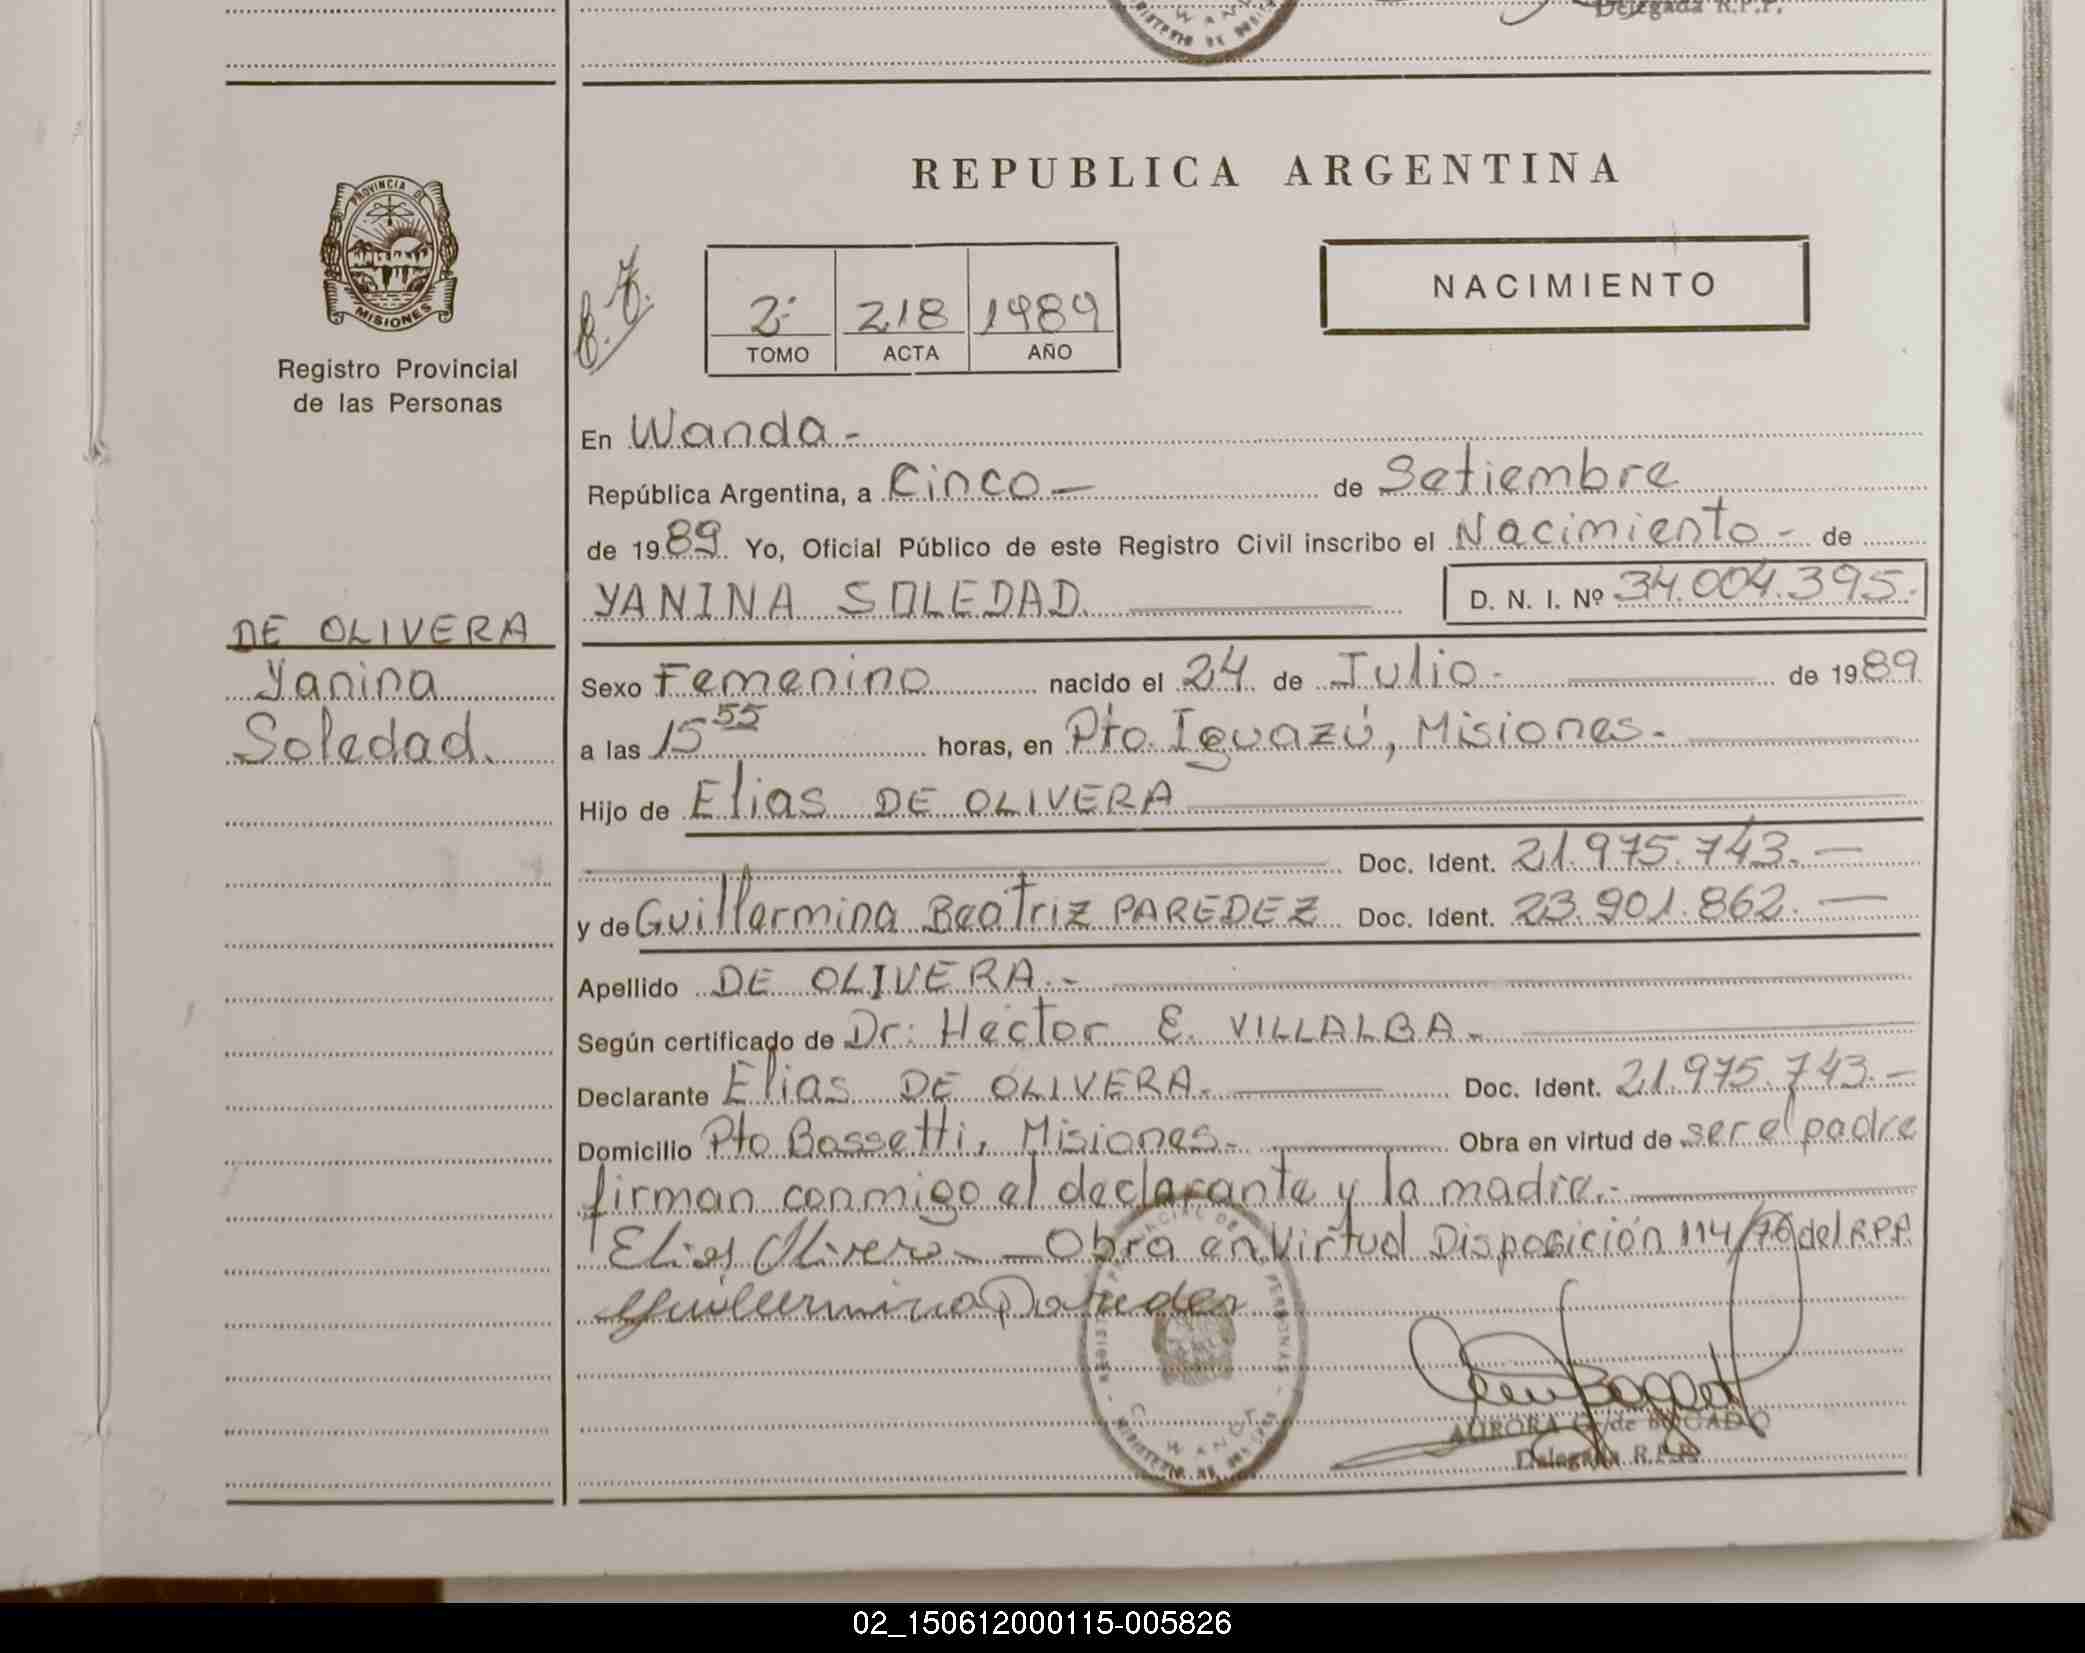 Delegada R.P.P.
PROVINCIA DE
MISIONES
Registro Provincial
de las Personas
DE OLIVERA
Yanina
Soledad.
REPUBLICA ARGENTINA
2º 218 1989
TOMO ACTA AÑO
NACIMIENTO
En Wanda -
República Argentina, a Cinco — de Setiembre
de 1989 Yo, Oficial Público de este Registro Civil inscribo el Nacimiento - de
YANINA SOLEDAD. D. N. I. Nº 34.004.395.
Sexo Femenino nacido el 24 de Julio - de 1989
a las 15 55 horas, en Pto. Iguazú, Misiones.-
Hijo de Elias DE OLIVERA
Doc. Ident. 21.975.743. —
y de Guillermina Beatriz PAREDEZ Doc. Ident. 23.901.862. —
Apellido DE OLIVERA.-
Según certificado de Dr: Hector E. VILLALBA.-
Declarante Elias DE OLIVERA. Doc. Ident. 21.975.743.-
Domicilio Pto Bossetti, Misiones.- Obra en virtud de ser el padre
firman conmigo el declarante y la madre.-
Elias Olivera - — Obra en Virtud Disposición 114/76 del R.P.P.
Guillermina Paredez
AURORA de BOGADO
Delegada R.P.P.
WANDA
02_150612000115-005826